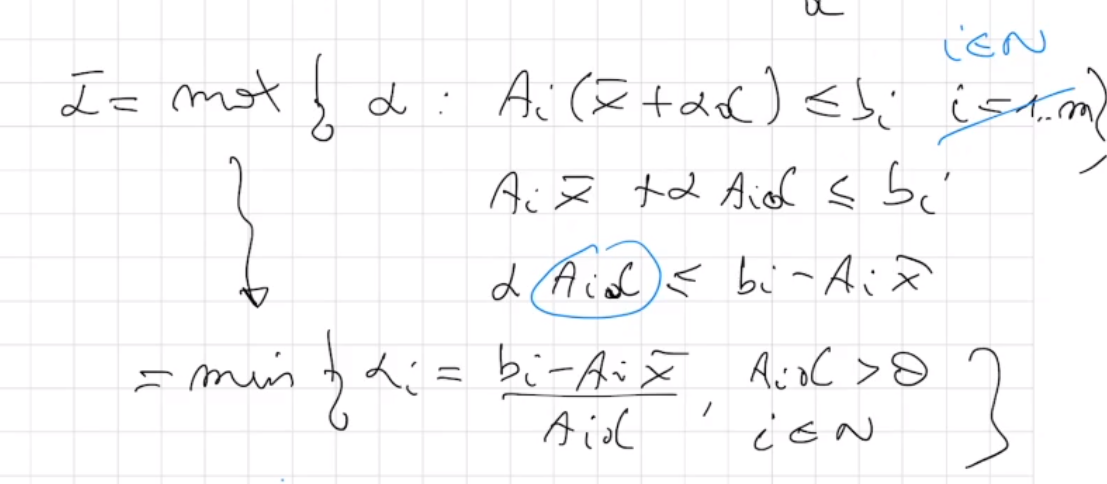 i∈N
ᾱ = max { α : A_i(x̄ + αd) ≤ b_i i=1..m}
A_i x̄ + α A_i d ≤ b_i
α A_i d ≤ b_i - A_i x̄
= min { α_i = (b_i - A_i x̄) / (A_i d) , A_i d > 0
i∈N }